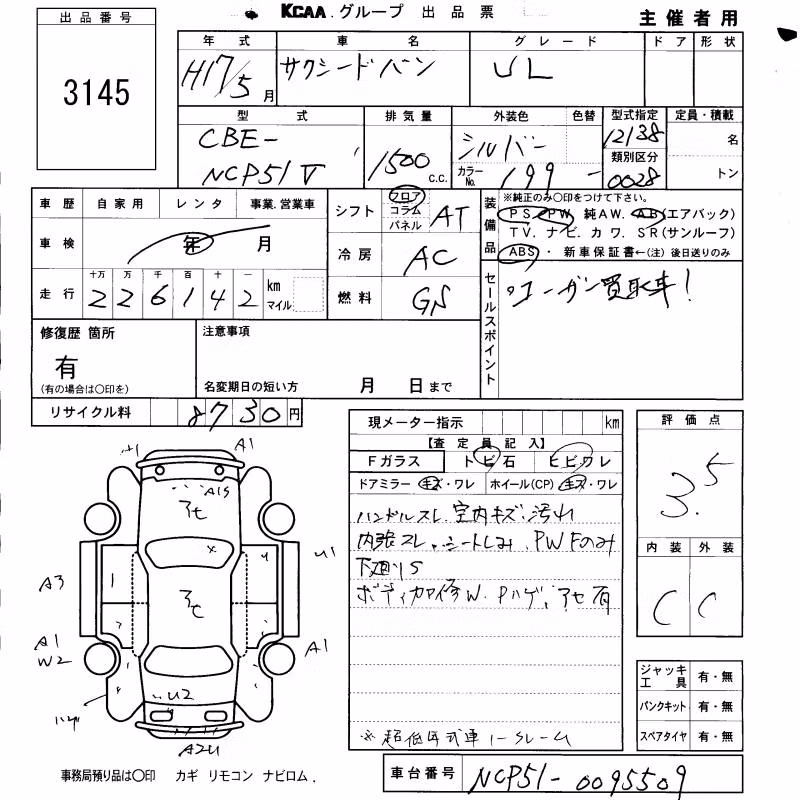 KCAA.グループ 出品票
主催者用
出品番号
3145
年式 車名 グレード ドア 形状
H17/5月 サクシードバン UL
型式 排気量 外装色 色替 型式指定 定員・積載
CBE-
NCP51V 1500 c.c. シルバー
カラーNo. 199 -
12138 名
類別区分
0028 トン
車歴 自家用 レンタ 事業.営業車
シフト フロア コラム パネル AT
車検 年 月
冷房 AC
走行 十万 万 千 百 十 一 km マイル
226142
燃料 GS
装備品
※純正のみ○印をつけて下さい。
PS PW 純AW. AB(エアバック)
TV. ナビ. カワ. SR(サンルーフ)
ABS・新車保証書←(注)後日送りのみ
セールスポイント
ユーザー買取車!
修復歴 箇所
有
(有の場合は○印を)
注意事項
名変期日の短い方 月 日まで
リサイクル料 8730円
現メーター指示 km
【査定員記入】
Fガラス トビ石 ヒビワレ
ドアミラー キズ・ワレ ホイール(CP) キズ・ワレ
ハンドルスレ.室内キズ.汚れ
内張スレ.シートしみ.PWFのみ
下廻りS
ボディカワ修W.Pハゲ.アセ有
※超低年式車ノークレーム
評価点
3.5
内装 外装
C C
ジャッキ工具 有・無
パンクキット 有・無
スペアタイヤ 有・無
A1
A1S
アセ
U1
A3
アセ
A1
W2
A1
U2
ハゲ
A2U
事務局預り品は○印 カギ リモコン ナビロム.
車台番号 NCP51-0095509